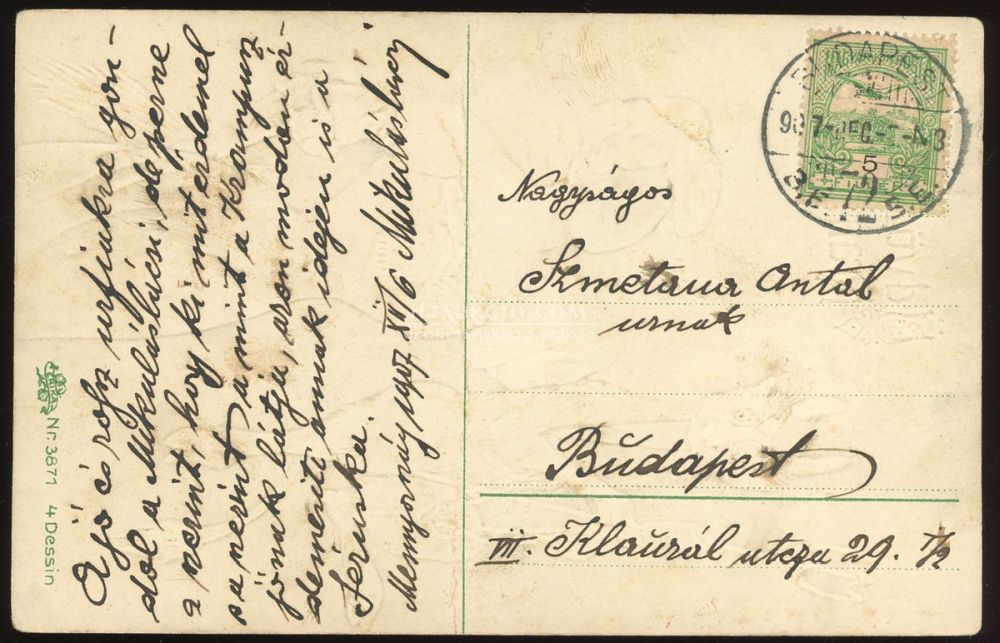 A jó és rossz urfiukra gon-
dol a Mikulásbácsi, de persze
a szerint, hogy ki mit érdemel
s a szerint a mint a Krampusz
jónak látja, azon módon ér-
demesiti annak idején is a
Feruska.
Mennyország 1907 XII/6 Mikulásbácsi
Nr. 3871 4 Dessin
BUDAPEST
907 DEC
5
Nagyságos
Szmetana Antal
urnak
Budapest
VII. Klauzál utcza 29. I/2